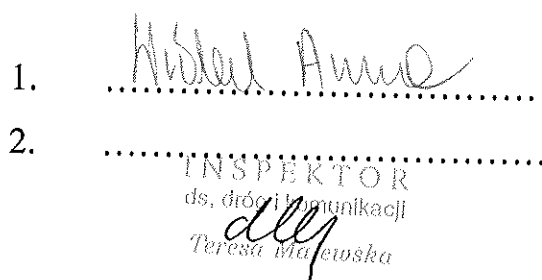 1. Anna
2.
INSPEKTOR
ds. dróg i komunikacji
Teresa Majewska